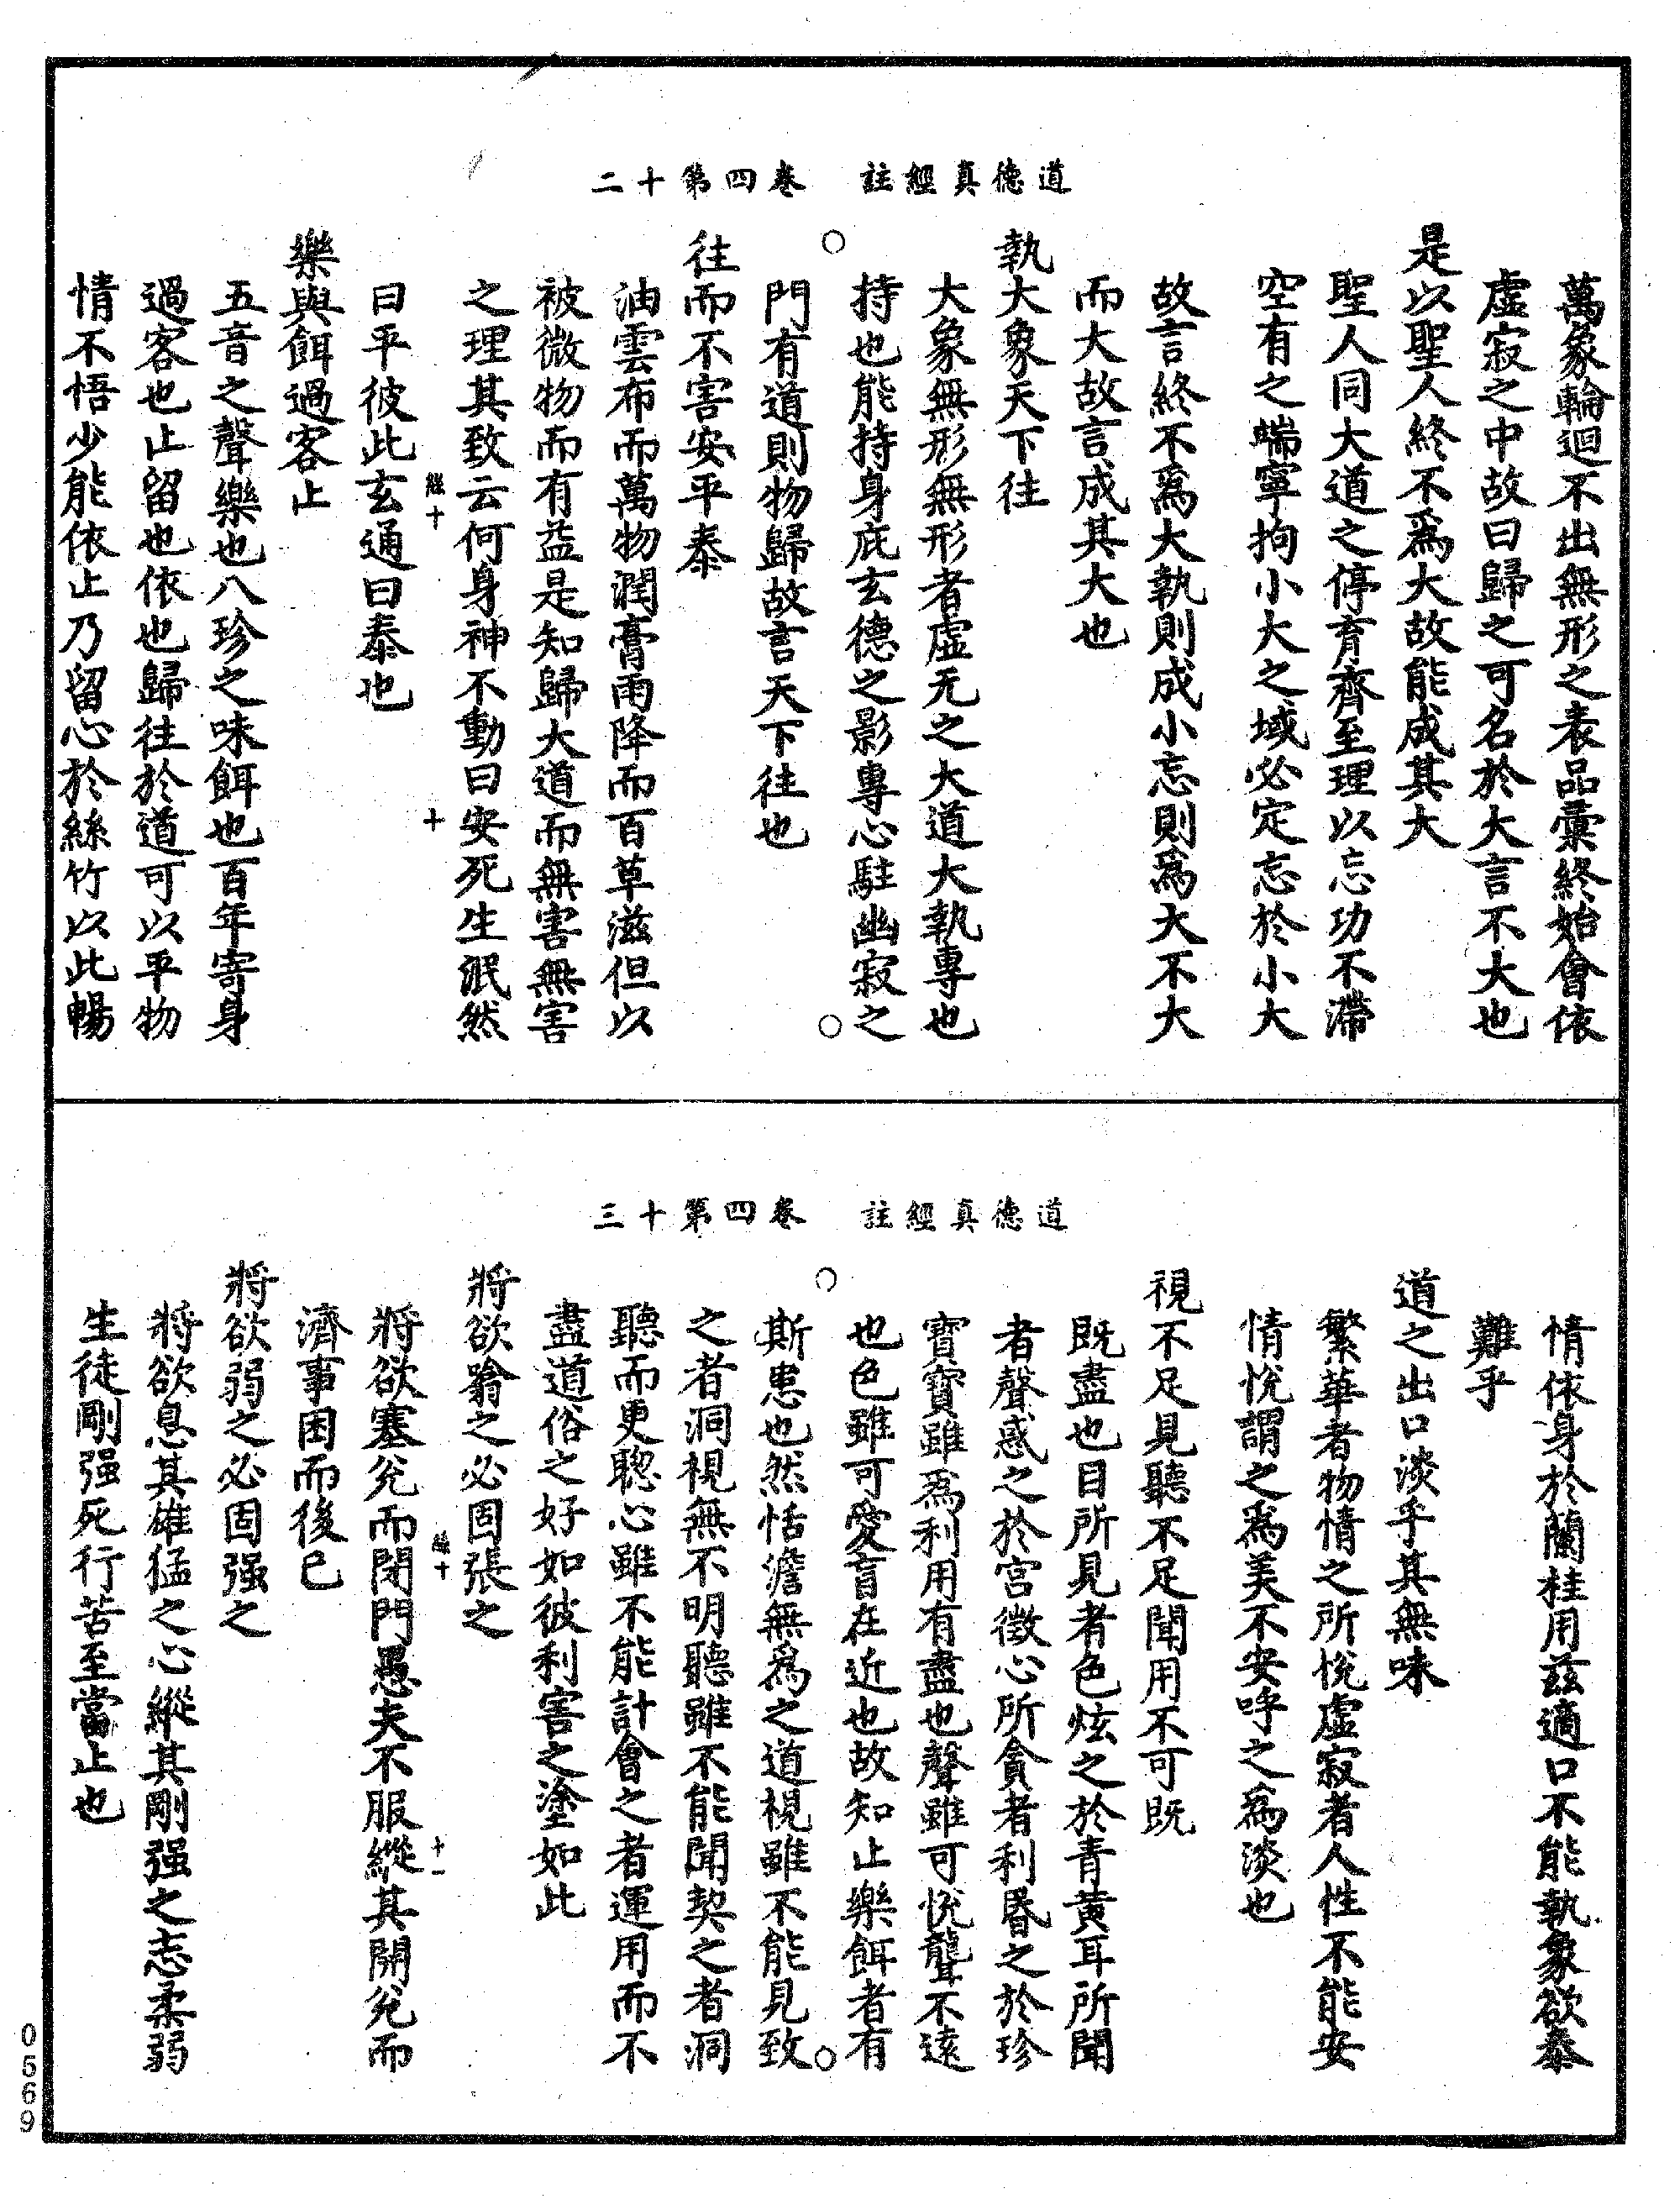 道德真經註　卷四第十二
萬象輪迴不出無形之表品彙終始會依
虛寂之中故曰歸之可名於大言不大也
是以聖人終不爲大故能成其大
聖人同大道之停育齊至理以忘功不滯
空有之端寧拘小大之域必定忘於小大
故言終不爲大執則成小忘則爲大不大
而大故言成其大也
執大象天下往
大象無形無形者虛无之大道大執專也
持也能持身庇玄德之影專心駐幽寂之
門有道則物歸故言天下往也
往而不害安平泰
油雲布而萬物潤膏雨降而百草滋但以
被微物而有益是知歸大道而無害無害
之理其致云何身神不動曰安死生泯然
十
曰平彼此玄通曰泰也
樂與餌過客止
五音之聲樂也八珍之味餌也百年寄身
過客也止留也依也歸往於道可以平物
情不悟少能依止乃留心於絲竹以此暢
道德真經註　卷四第十三
情依身於蘭桂用茲適口不能執象欲泰
難乎
道之出口淡乎其無味
繁華者物情之所悅虛寂者人性不能安
情悅謂之爲美不安呼之爲淡也
視不足見聽不足聞用不可既
既盡也目所見者色炫之於青黄耳所聞
者聲惑之於宫徵心所貪者利昬之於珍
寳寳雖爲利用有盡也聲雖可悅聾不遠
也色雖可愛盲在近也故知止樂餌者有
斯患也然恬澹無爲之道視雖不能見致
之者洞視無不明聽雖不能聞契之者洞
聽而更聦心雖不能計會之者運用而不
盡道俗之好如彼利害之塗如此
將欲翕之必固張之
十一
將欲塞兊而閉門愚夫不服縱其開兊而
濟事困而後已
將欲弱之必固强之
將欲息其雄猛之心縱其剛强之志柔弱
生徒剛强死行苦至當止也
0569